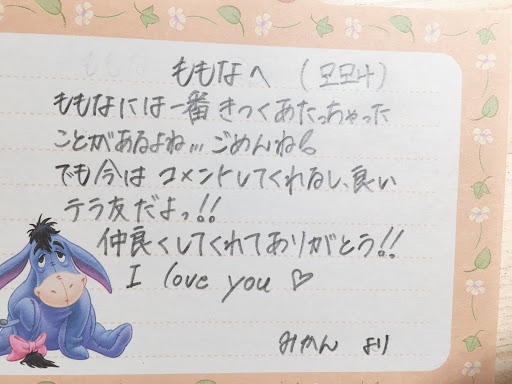 ももなへ (모모나)
ももなには一番きつくあたっちゃった
ことがあるよね,,, ごめんね
でも今はコメントしてくれるし、良い
テラ友だよっ!!
仲良くしてくれてありがとう!!
I love you ♡
みかん より